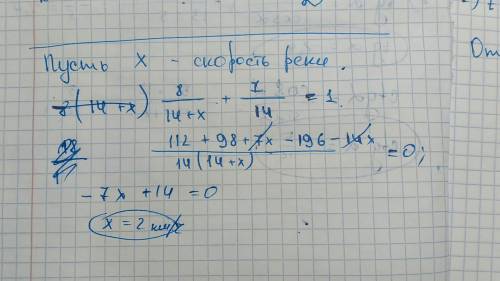 Пусть x - скорость реки.
8(14+x) 8/(14+x) + 7/14 = 1.
(112 + 98 + 7x - 196 - 14x)/(14(14+x)) = 0;
-7x + 14 = 0
x = 2 км/ч
От